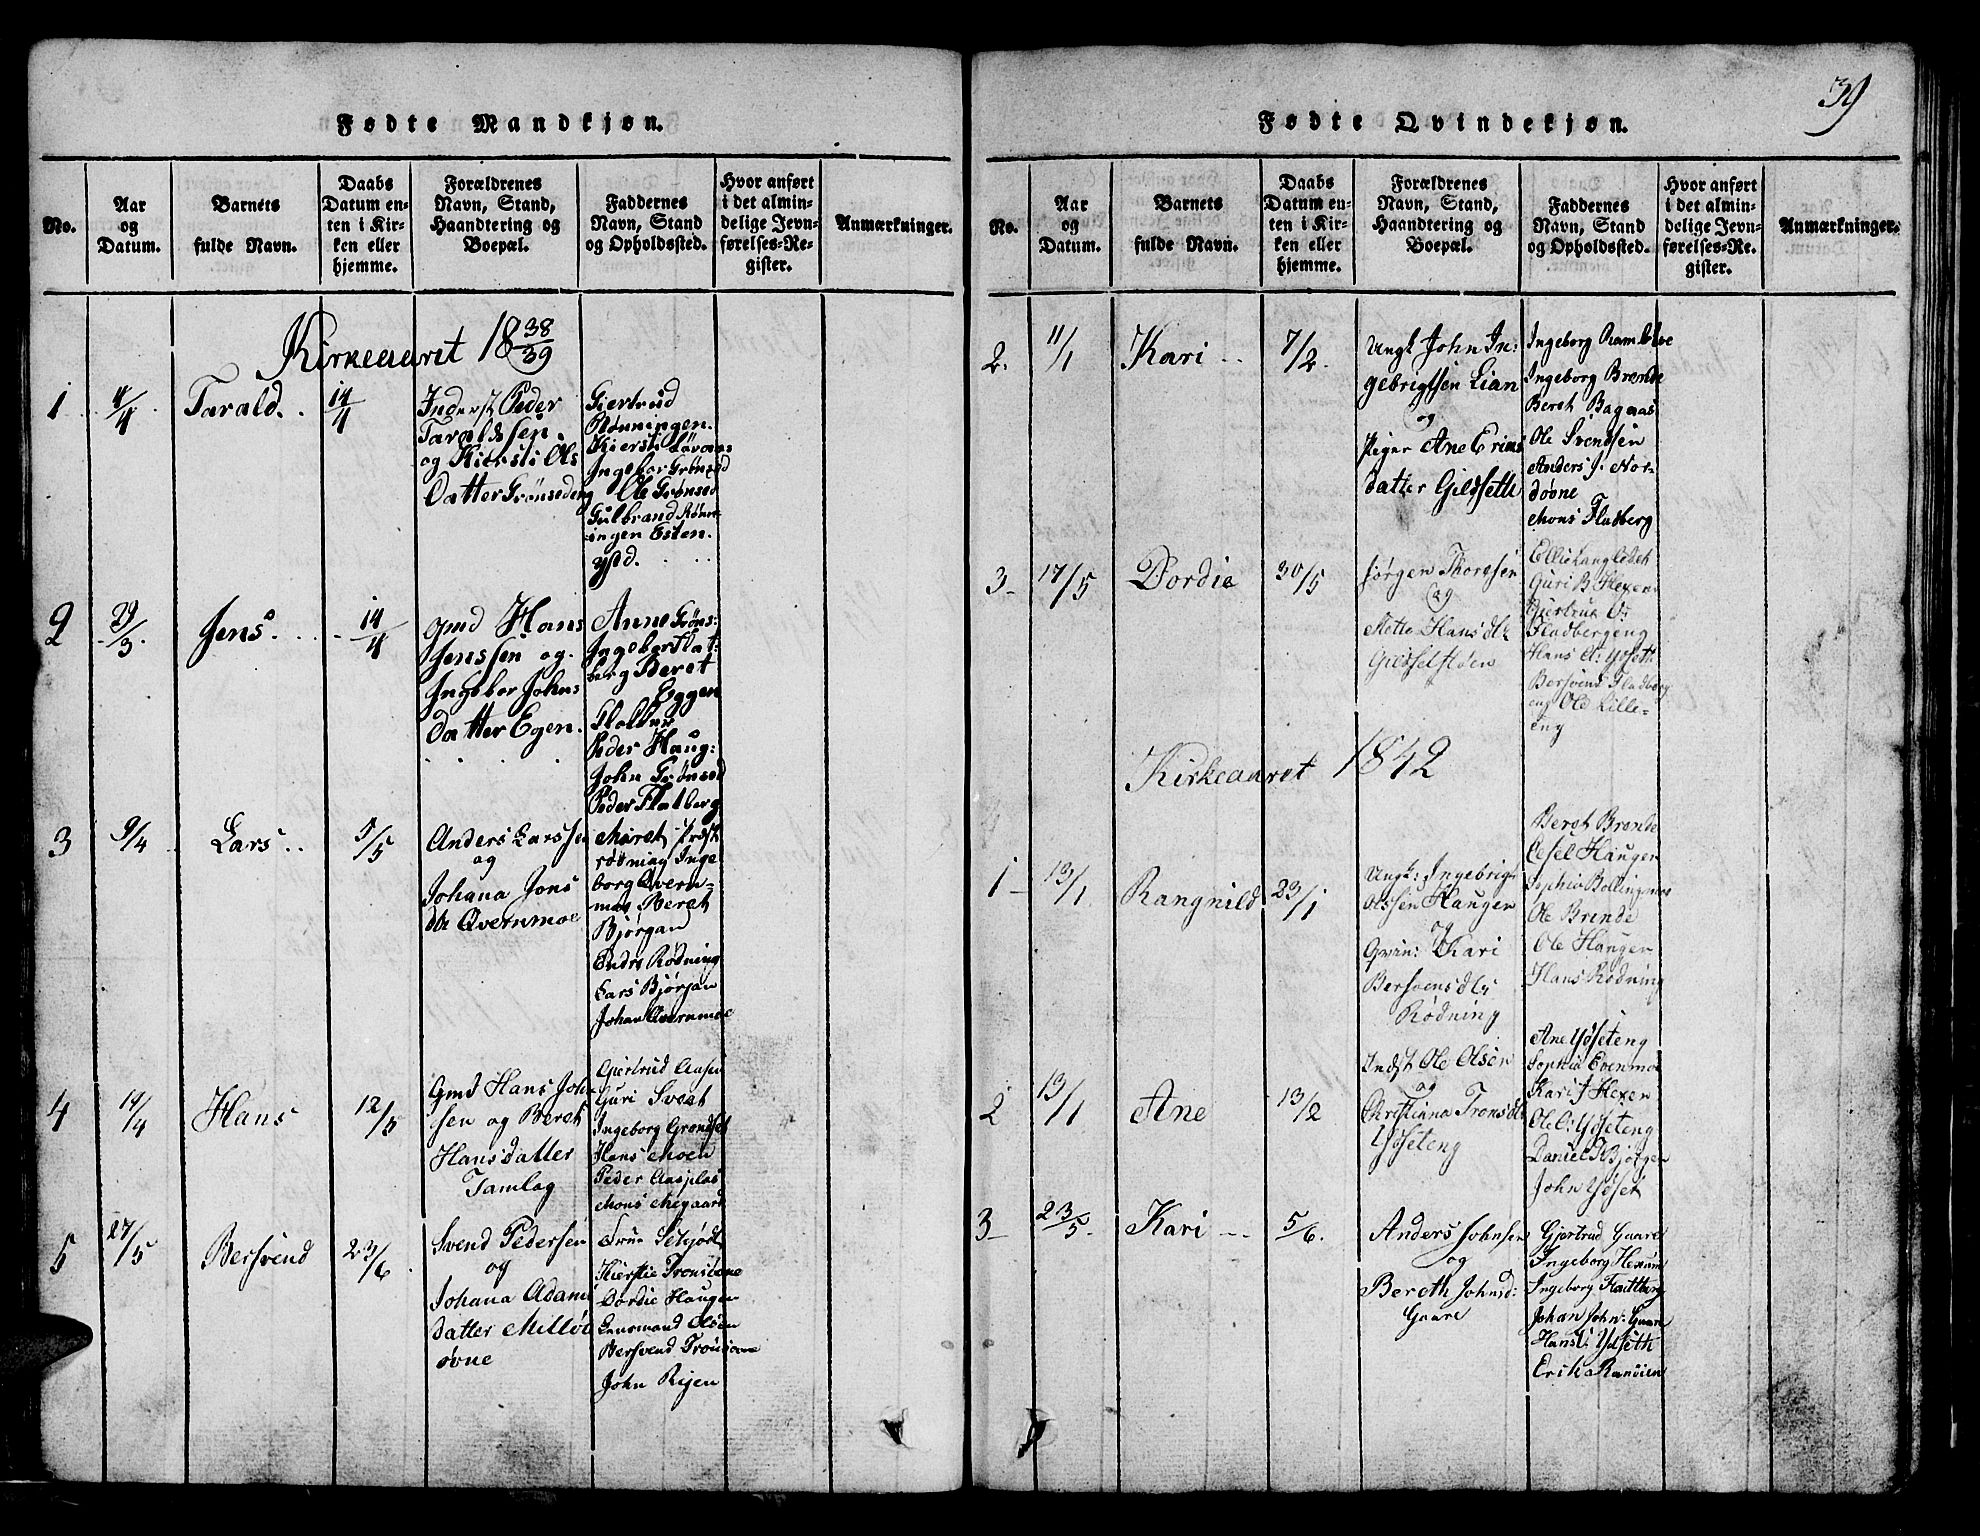 39
Fødte Mandkjøn.
No.
Aar
og
Datum.
Barnets
fulde Navn.
Daabs
Datum en-
ten i Kir-
ken eller
hjemme.
Forældrenes
Navn, Stand,
Haandtering og
Boepæl.
Faddernes
Navn, Stand
og Opholdssted.
Hvor anført
i det almin-
delige Jevn-
førelses-Re-
gister.
Anmærkninger.
Kirkeaaret 18 38/39
1 4/4 Tarald 14/4
Inderst Peder
Taraldssen
og Kiersti Ols
Datter Grønsedeng
Giertrud
Rønningen
Kiersti
Ingebor Grønsed
Ole Grønsed
Gulbrand Rønn-
ingen Esten
ysed.
2 29/3 Jens 14/4
Gmd Hans
Jenssen og
Ingebor Johns
datter Egen.
Anne Grøns:
Ingebor Flat:
berg Beret
Eggen
Peder Haug:
John Grønsed
Peder Flatberg
3 9/4 Lars 5/5
Anders Larssen
og
Johana Jons
dtr Qvernmoe
Maret Præst
rødning Inge
borg Qvern-
moe Beret
Bjørgan
Endre Rødning
Lars Bjørgan
Johan Qvernmoe
4 14/4 Hans 12/5
Gmd Hans Joh-
sen og Beret
Hansdatter
Tamlag
Gjertrud Aasen
Guri Sveet
Ingeborg Grondset
Hans Moen
Peder Aasplas
Mons Megaard
5 27/5 Bersvend 23/6
Svend Pedersen
og
Johana Adams
datter Milløi
øvne
True
Kierstie Tronsøone
Dordie Haugen
Lensmand Olsen
Bersvend Tronsøone
John Rijen
Fødte Qvindekjøn.
No.
Aar
og
Datum.
Barnets
fulde Navn.
Daabs
Datum en-
ten i Kir-
ken eller
hjemme.
Forældrenes
Navn, Stand,
Haandtering og
Boepæl.
Faddernes
Navn, Stand
og Opholdssted.
Hvor anført
i det almin-
delige Jevn-
førelses-Re-
gister.
Anmærkninger.
2. 11/1 Kari 7/2.
Ungk John In:
gebrigtsen Lian
og
Piger Ane Erics
datter Gildseth
Ingeborg Ramløve
Ingeborg Brende
Beret Bagaas
Ole Svendsen
Anders J. Nor-
døvne
Mons Fladberg
3 17/5 Dordie 30/5
Jørgen Thoresen
og
Mette Hansdtr
Gildsetfloen
Ellie Langledet
Guri B. Hexem
Gjertrud O:
Fladbergeng
Hans O: Ydset:
Bersvend Fladberg
eng Ole Lille-
eng
Kirkeaaret 1842
1 13/1 Rangnild 23/1
Ungk: Ingebrigt
Olssen Haugen
og
Qvin: Kari
Bersvensdtr
Rødning
Beret Brende
Cesel Haugen
Sophia Bollingmoe
Ole Brende
Ole Haugen
Hans Rødning
2 13/1 Ane 13/2
Indst Ole Olsen
og
Christiana Tronsdtr
Ydseteng
Ane Ydseteng
Sophia Evenmoe
Kari J Hexem
Ole O: Ydseteng
Daniel T Bjørgen
John Ydset
3 23/5. Kari 5/6.
Anders Johnsen
og
Bereth Johnsd:
Gaare
Gjertrud Gaare
Ingeborg Hexum
Ingeborg Fladtberg
Johan John: Gaare
Hans O: Ydseth
Erik Ranøien